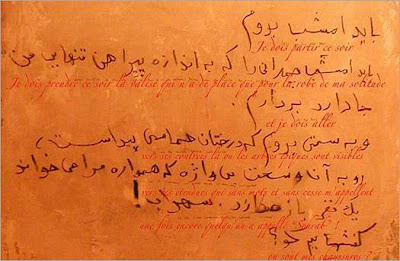 باید امشب بروم
Je dois partir ce soir
باید امشب چمدانی را که به اندازه پیراهن تنهایی من
Je dois prendre ce soir la balise qui n a de place que pour la robe de ma solitude
جا دارد بردارم.
et je dois aller
و به سمتی بروم که درختان حماسی پیداست،
vers ses contrees là ou les arbres epiques sont visibles
رو به آن وسعت بی واژه که همواره مرا می خواند
vers ses etenues qui sans mots et sans cesse m appellent
یک نفر باز صدا زد: سهراب!
une fois encore quelqu un a
کفشهایم کو؟
ou sont mes chaussures ?